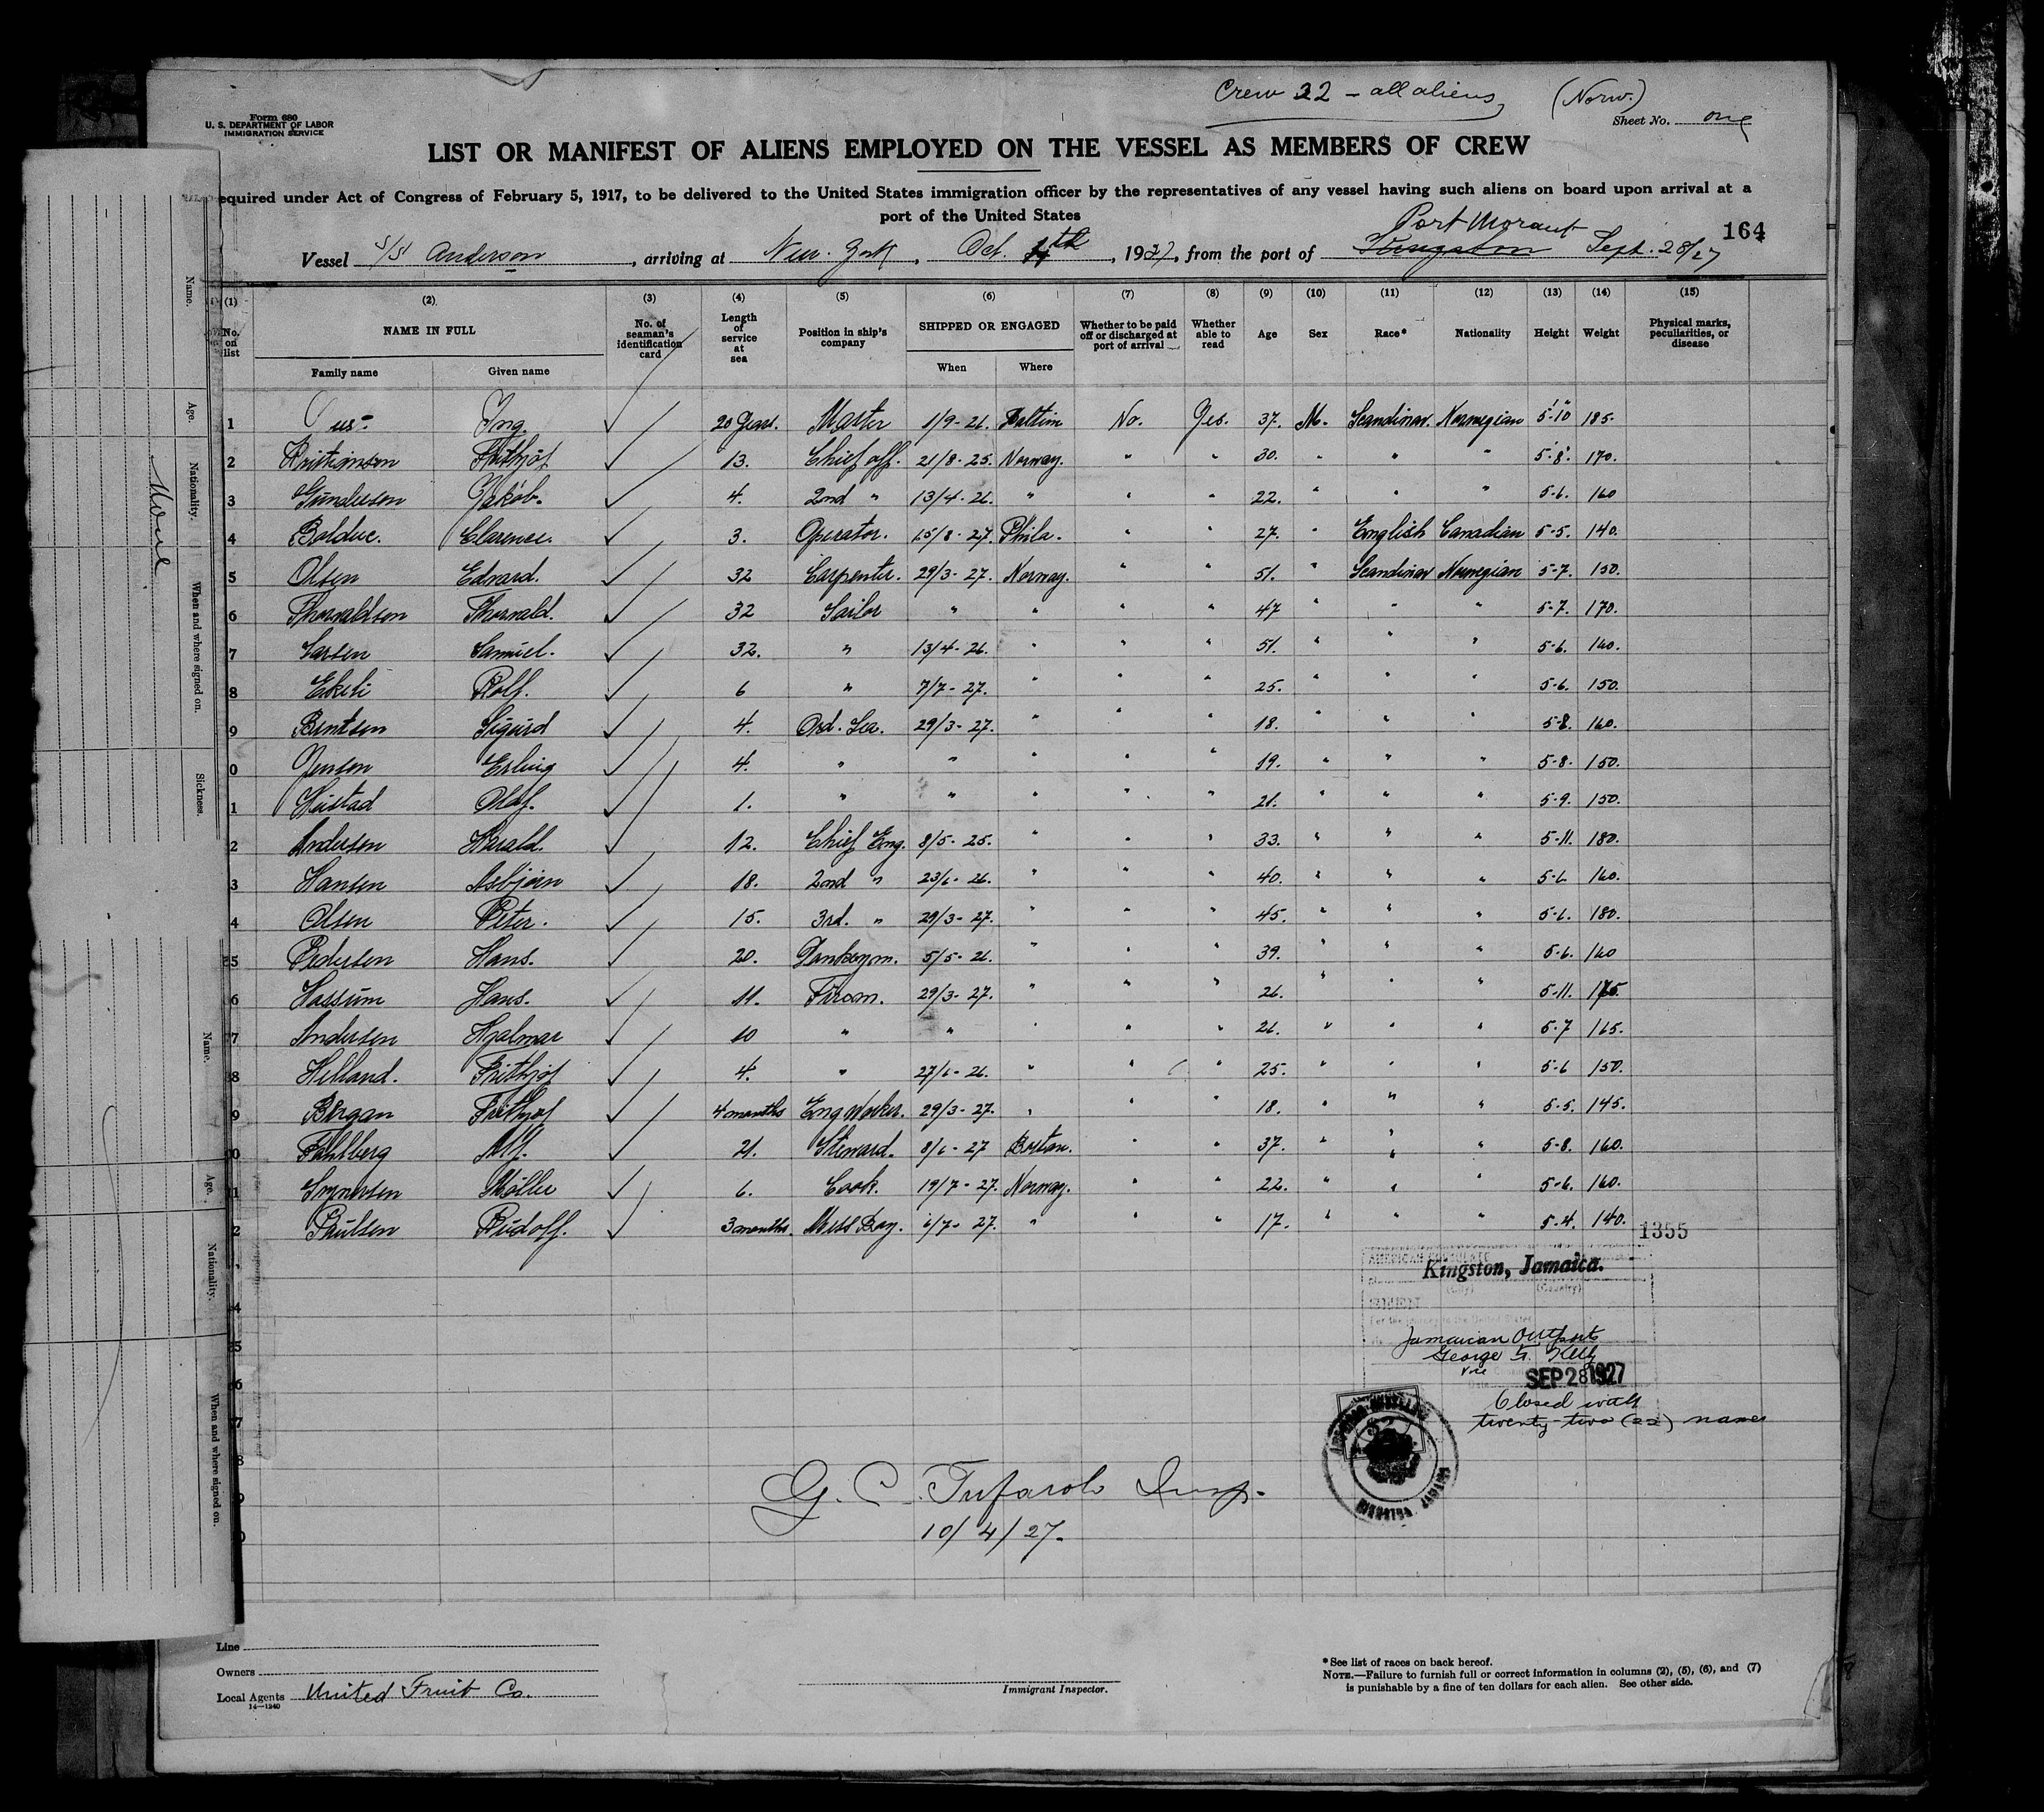 Crew 22 - all aliens (Norw.)
Form 680
U. S. DEPARTMENT OF LABOR
IMMIGRATION SERVICE
Sheet No. one
LIST OR MANIFEST OF ALIENS EMPLOYED ON THE VESSEL AS MEMBERS OF CREW
equired under Act of Congress of February 5, 1917, to be delivered to the United States immigration officer by the representatives of any vessel having such aliens on board upon arrival at a
port of the United States
Port Morant 164
Vessel S/S Anderson, arriving at New-York, Oct. 4th, 1927, from the port of Kingston Sept. 28/27
(1) (2) (3) (4) (5) (6) (7) (8) (9) (10) (11) (12) (13) (14) (15)
No. on list NAME IN FULL No. of seaman's identification card Length of service at sea Position in ship's company SHIPPED OR ENGAGED Whether to be paid off or discharged at port of arrival Whether able to read Age Sex Race* Nationality Height Weight Physical marks, peculiarities, or disease
Family name Given name When Where
1 Ing. 20 Years. Master 1/9-26. Baltim No. Yes. 37. M. Scandinav. Norwegian 5'-10" 185.
2 Kristiansen Frithjof 13. Chief off. 21/8-25. Norway. " " 30. " " " 5-8. 170.
3 Gundersen Jakob. 4. 2nd " 13/4-26. " " " 22. " " " 5-6. 160
4 Bolduc. Clarence. 3. Operator. 15/8-27. Phila. " " 27. " English Canadian 5-5. 140.
5 Olsen Edvard. 32 Carpenter. 29/3-27. Norway. " " 51. " Scandinav Norwegian 5-7. 150.
6 Thorvaldsen Thorvald. 32 Sailor " " " " 47 " " " 5-7. 170.
7 Larsen Samuel. 32. " 13/4-26. " " " 51. " " " 5-6. 160.
8 Ekeli Rolf. 6 " 7/7-27. " " " 25. " " " 5-6. 150.
9 Berntsen Sigurd 4. Ord. Sea. 29/3-27. " " " 18. " " " 5-8. 160.
0 Jensen Erling 4. " " " " " 19. " " " 5-8. 150.
1 Olaf. 1. " " " " " 21. " " " 5-9. 150.
2 Andersen Harald. 12. Chief Eng. 8/5-25. " " " 33. " " " 5-11. 180.
3 Hansen Asbjørn 18. 2nd " 23/6-26. " " " 40. " " " 5-6 160.
4 Olsen Peter. 15. 3rd. " 29/3-27. " " " 45. " " " 5-6. 180.
5 Pedersen Hans. 20. Donkeym. 5/5-26. " " " 39. " " " 5-6. 160
6 Hassum Hans. 11. Firem. 29/3-27. " " " 26. " " " 5-11.
7 Andersen Hjalmar 10 " " " " " 26. " " " 5-7 165.
8 Helland. Frithjof 4. " 27/6-26. " " " 25. " " " 5-6 150.
9 Bergan Frithjof 4 months Eng Worker. 29/3-27. " " " 18. " " " 5-5. 145.
0 Fahlberg Alf. 21. Steward. 8/6-27 Boston. " " 37. " " " 5-8. 160.
1 Møller 6. Cook. 19/7-27. Norway. " " 22. " " " 5-6. 160.
2 Paulsen Rudolf. 3 months. Mess Boy. 6/7-27. " " " 17. " " " 5-4. 140.
1355
AMERICAN CONSULATE
Kingston, Jamaica.
(City) (Country)
SEEN
For the journey to the United States
Jamaican Outports
George F. Kelly
Vice
SEP 28 1927
Closed with
twenty-two (22) names
G. C. Tufarolo Insp.
10/4/27.
Line
Owners
Local Agents United Fruit Co.
14—1240
Immigrant Inspector.
*See list of races on back hereof.
NOTE.—Failure to furnish full or correct information in columns (2), (5), (6), and (7)
is punishable by a fine of ten dollars for each alien. See other side.
Name.
Age.
Nationality.
When and where signed on.
Sickness.
None
Name.
Age.
Nationality.
When and where signed on.